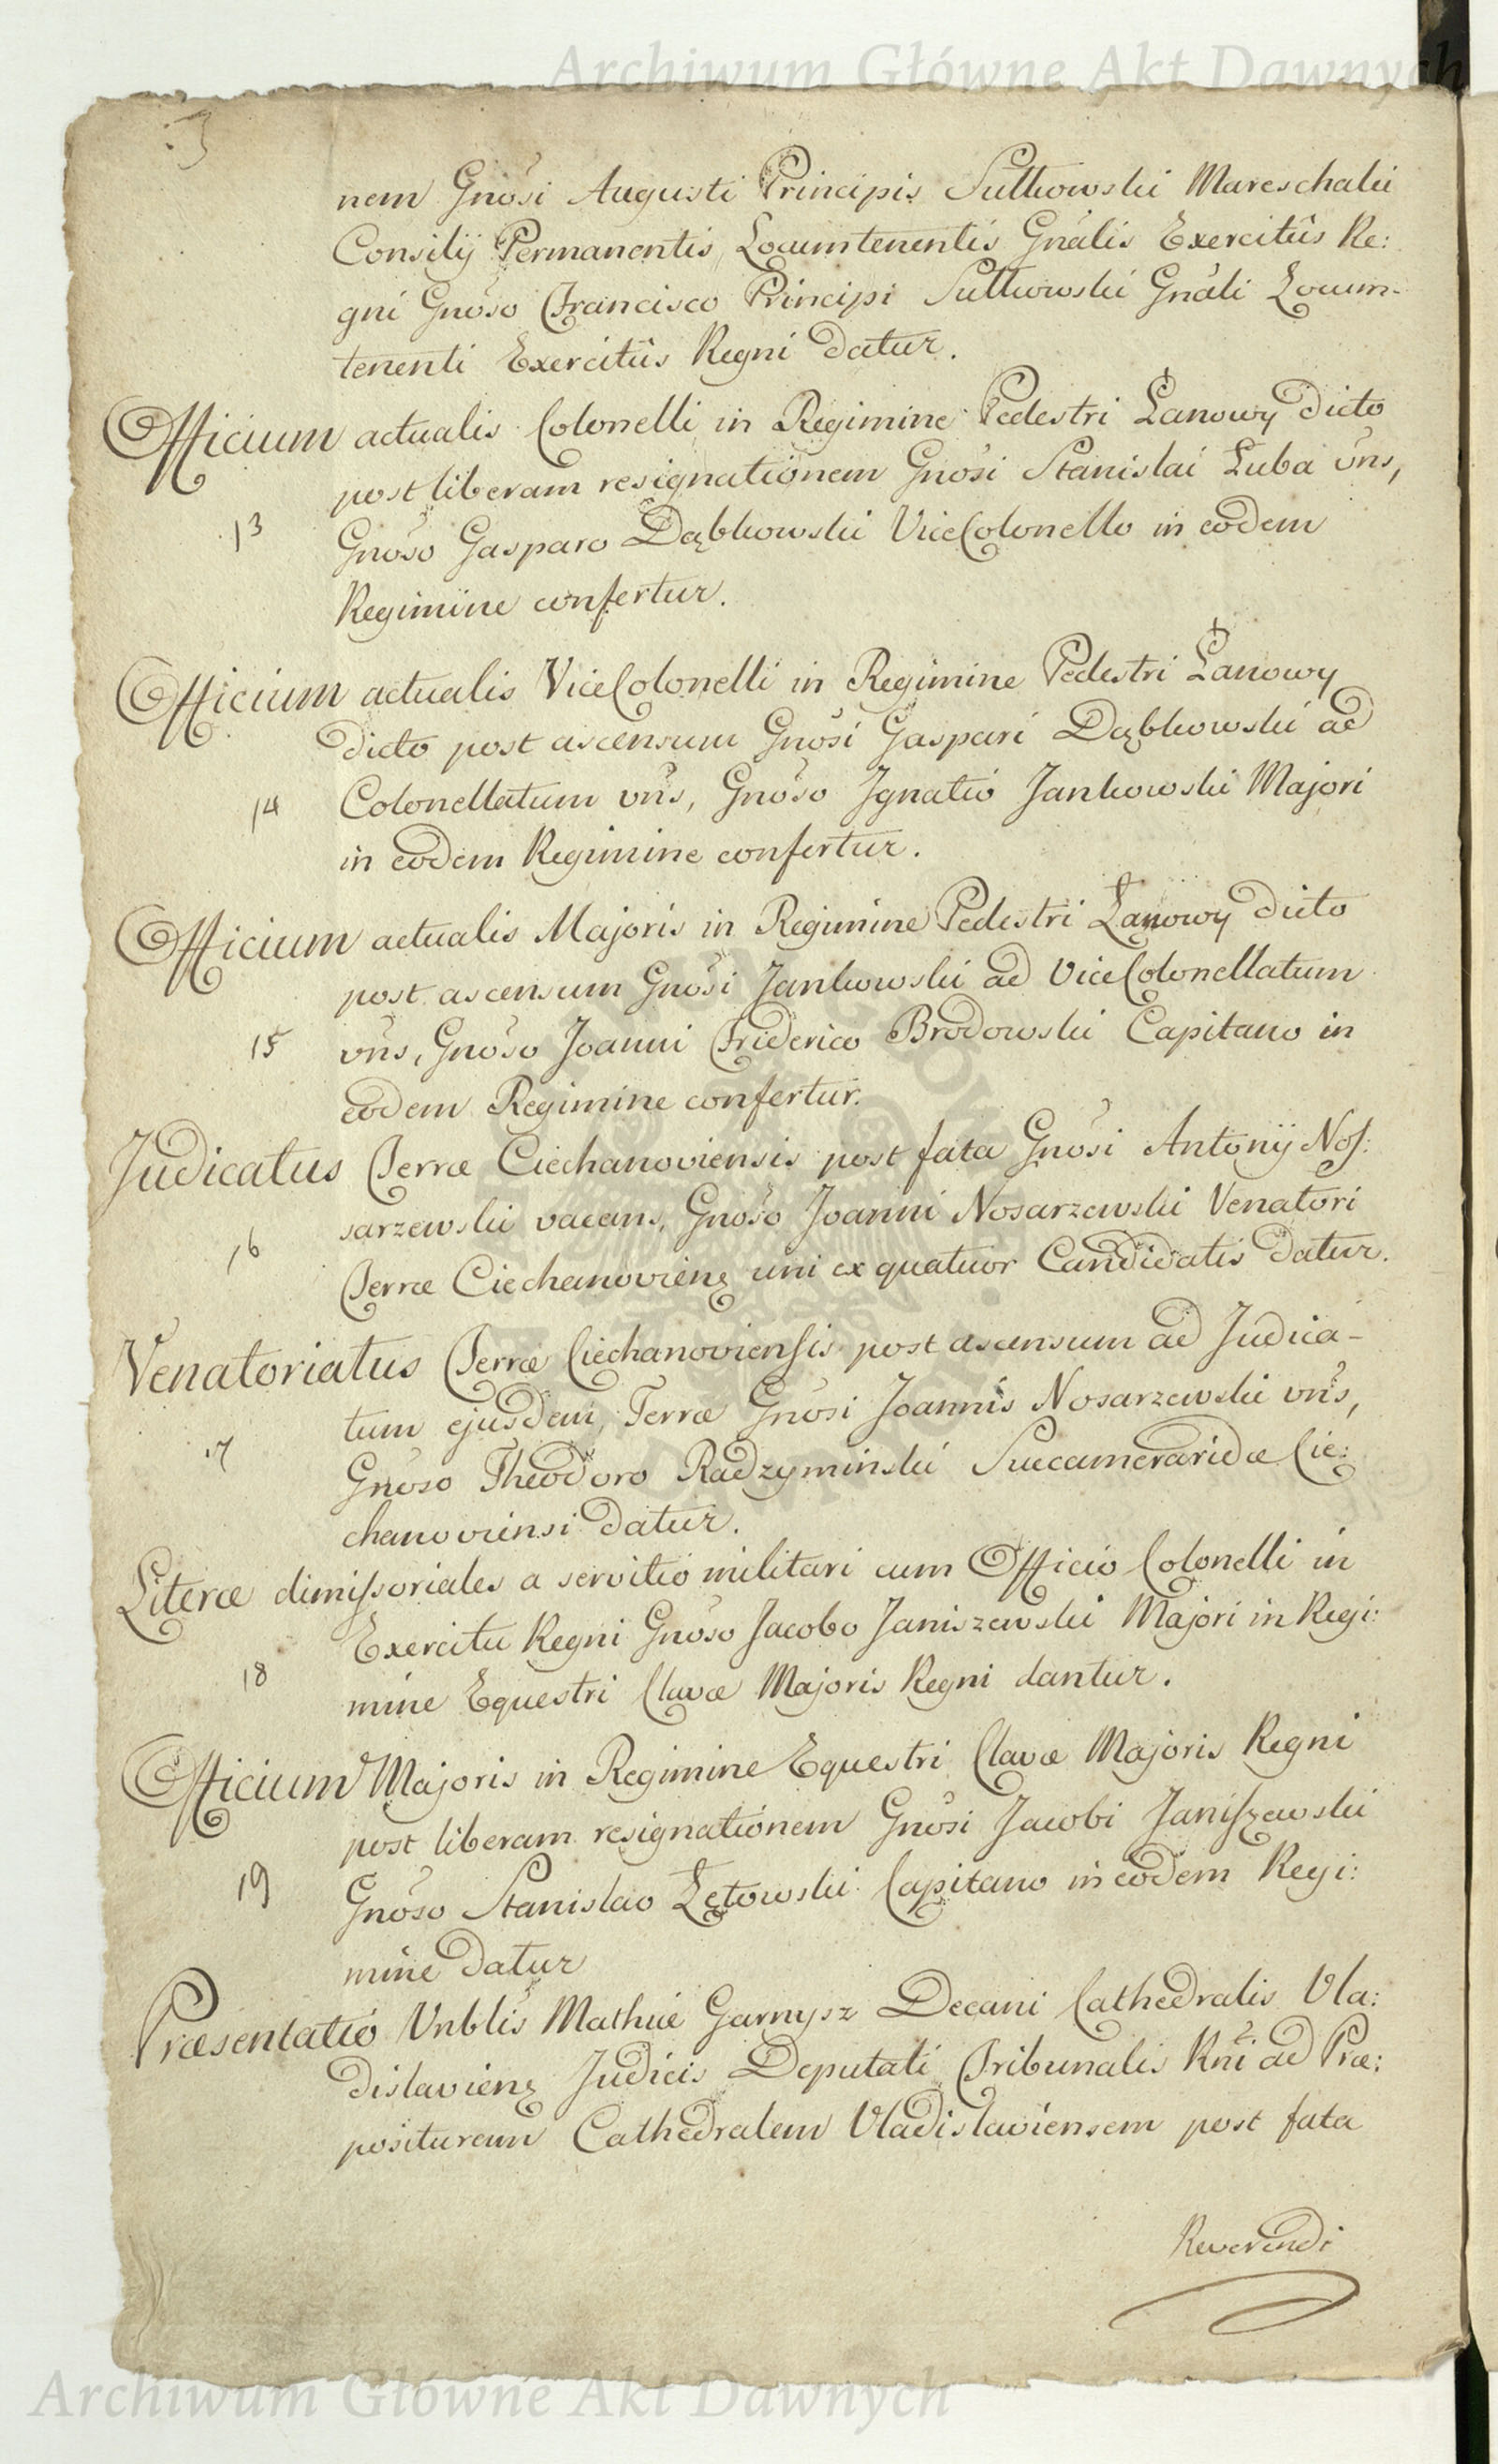 Archiwum Główne Akt Dawnych
:3
nem Gnosi Augusti Principis Sułkowski Mareschalii
Consilÿ Permanentis, Locumtenentis Gnalis Exercitûs Re:
gni Gnoso Francisco Principi Sułkowski Gnali Locum-
tenenti Exercitûs Regni datur.
Officium actualis Colonelli in Regimine Pedestri Łanowy dicto
post liberam resignationem Gnosi Stanislai Luba vns,
13
Gnoso Gasparo Dąbkowski ViceColonello in eodem
Regimine confertur.
Officium actualis ViceColonelli in Regimine Pedestri Łanowy
dicto post ascensum Gnosi Gaspari Dąbkowski ad
14
Colonellatum vns, Gnoso Ignatio Jankowski Majori
in eodem Regimine confertur.
Officium actualis Majoris in Regimine Pedestri Łanowy dicto
post ascensum Gnosi Jankowski ad ViceColonellatum
15
vns, Gnoso Joanni Friderico Brodowski Capitano in
eodem Regimine confertur.
Judicatus Terræ Ciechanoviensis post fata Gnosi Antonÿ Nos:
sarzewski vacans, Gnoso Joanni Nosarzewski Venatori
16
Terræ Ciechanovienę uni ex quatuor Candidatis datur.
Venatoriatus Terræ Ciechanoviensis post ascensum ad Judica-
tum ejusdem Terræ Gnosi Joannis Nosarzewski vns,
17
Gnoso Theodoro Radzyminski Succameraridæ Cie:
chanoviensi datur.
Literæ dimissoriales a servitio militari cum Officio Colonelli in
Exercitu Regni Gnoso Jacobo Janiszewski Majori in Regi:
18
mine Equestri Clavæ Majoris Regni dantur.
Officium Majoris in Regimine Equestri Clavæ Majoris Regni
post liberam resignationem Gnosi Jacobi Janiszewski
19
Gnoso Stanislao Łętowski Capitano in eodem Regi:
mine datur
Præsentatio Vnblis Mathiæ Garnysz Decani Cathedralis Vla:
dislavienę Judicis Deputati Tribunalis Rni ad Præ:
posituram Cathedralem Vladislaviensem post fata
Reverendi
Archiwum Główne Akt Dawnych